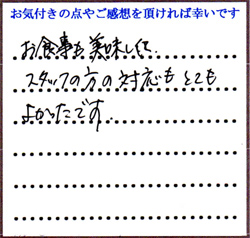 お気付きの点やご感想を頂ければ幸いです
お食事も美味しくて、
スタッフの方の対応もとても
よかったです。